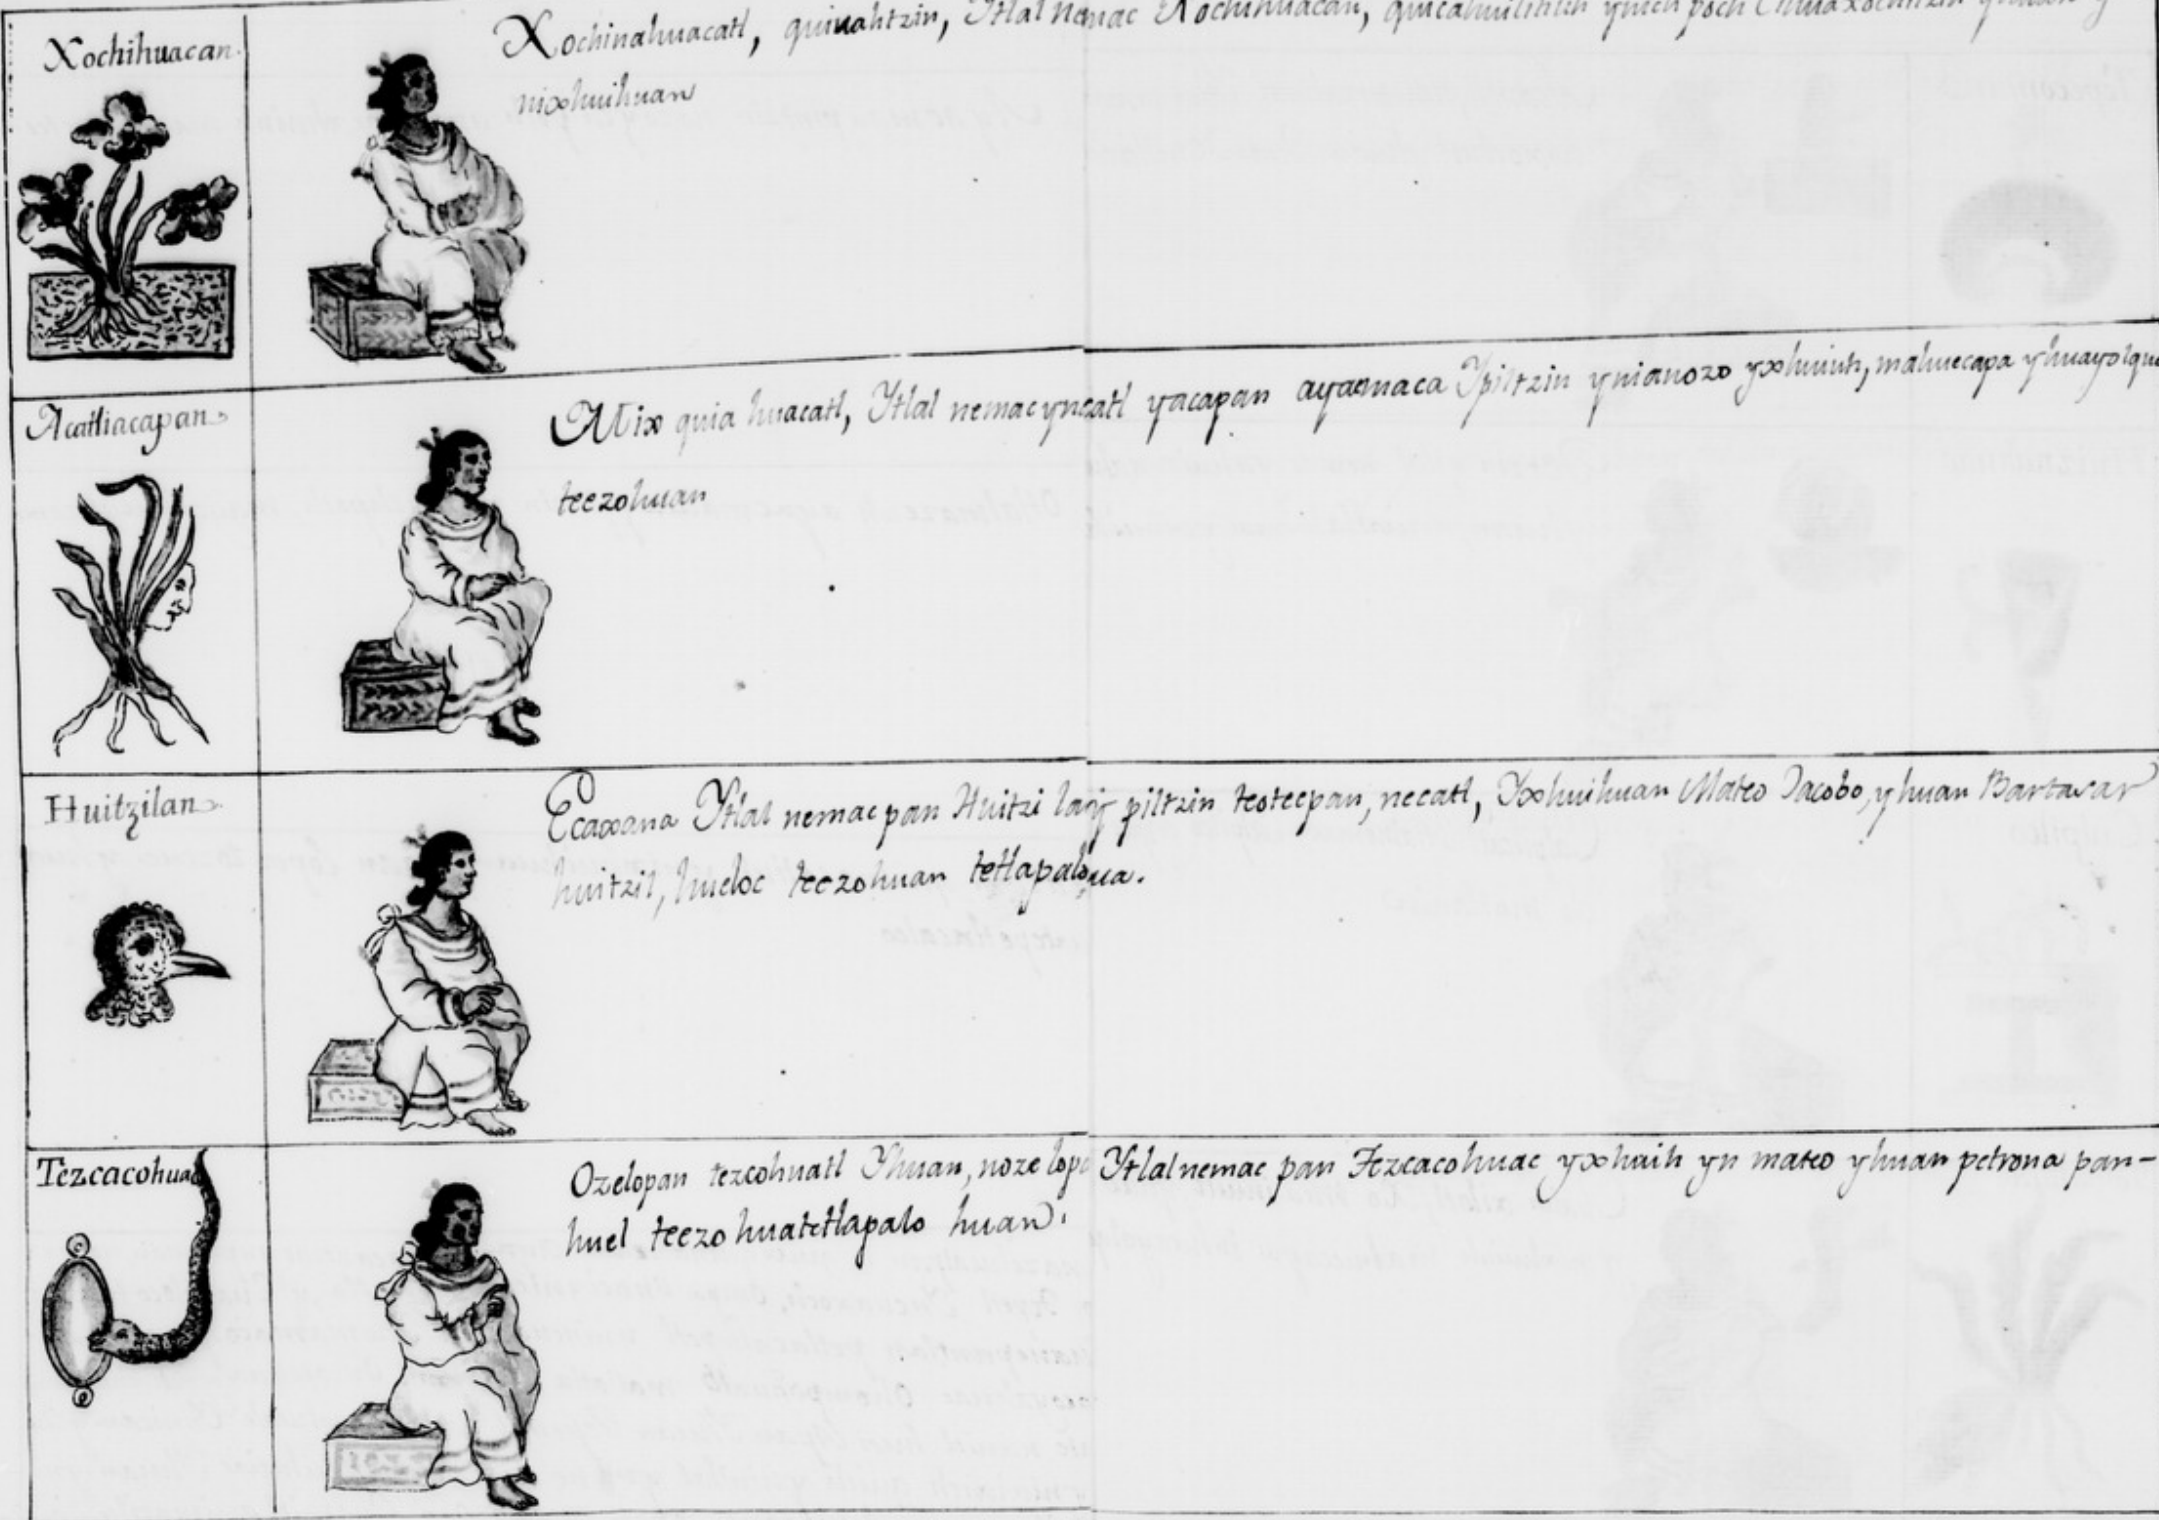 Xochihuacan
Xochinahuacatl, quinahtzin, Ytlal nemac Xochihuacan,
nixhuihuan
Acatliacapan
Mix quia huacatl, Ytlal nemac yncatl yacapan ayacmaca Ypiltzin ynianozo yxhuiuh, mahuecapa yhuayolque
teezohuan
Huitzilan
Ecaxana Ytlal nemac pan Huitzi lan y piltzin teotecpan, necatl, Yxhuihuan Mateo Jacobo, yhuan Bartasar
huitzil, hueloc teezohuan tetlapaloua.
Tezcacohuac
Ozelopan tezcohuatl Yhuan, noze lopa Ytlalnemac pan Tezcacohuac yxhuih yn mateo yhuan petrona pan-
huel teezo huatetlapalo huan.